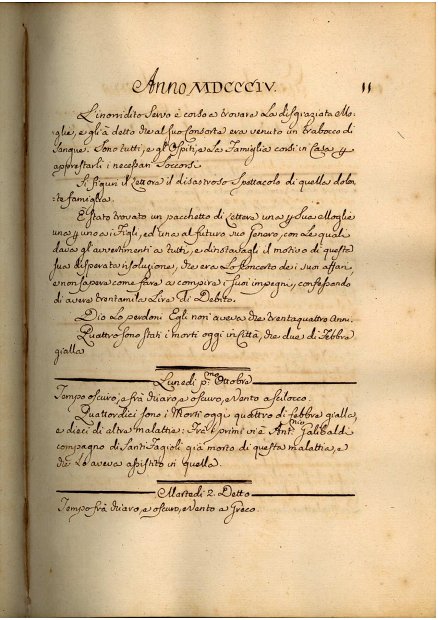 Anno MDCCCIV. 11
L'inorridito Servo è corso a trovare La disgraziata Mo:
glie, e gli à detto che al suo Consorte era venuto un trabocco di
Sangue. Sono tutti, e gl'Ospiti, e La Famiglia corsi in Casa p
apprestarli i necessari Soccorsi.
Si figuri il Lettore il disastroso Spettacolo di quella dolen
te famiglia.
È stato trovato un pacchetto di Lettere una p sua Moglie
una p uno a i Figli, ed una al futuro suo Genero, con Le quali
dava gl'avvertimenti a tutti, e dinotavagli il motivo di questa
sua disperata risoluzione, che era Lo sconcerto de i suoi affari,
e non sapere come fare a compire i suoi impegni, confessando
di avere trentamila Lire di Debito.
Dio Lo perdoni. Egli non aveva che trentaquattro Anni.
Quattro sono stati i morti oggi in Città, che due di Febbre
gialla
Lunedì p.mo Ottobre
Tempo oscuro, e frà chiaro, e oscuro, e Vento a scilocco.
Quattordici sono i Morti oggi quattro di febbre gialla,
e dieci di altre malattie: Trà i primi vi è Ant.nio Galibaldi
compagno di Santi Fagioli già morto di questa malattia, e
che Lo aveva assistito in quella.
Martedì 2. Detto
Tempo frà chiaro, e oscuro, e Vento a Greco.